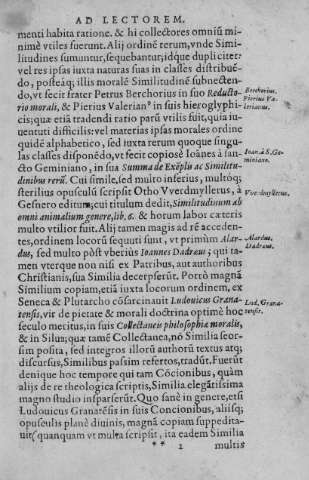 AD LECTOREM.
menti habita ratione. & hi collectores omniũ mi-
nimè vtiles fuerunt. Alij ordinẽ rerum, vnde Simi-
litudines sumuntur, sequebantur; idq́ue dupliciter:
vel res ipsas iuxta naturas suas in classes distribuẽ-
do, posteaq́; illis morales Similitudinẽ subnecten-
do, vt fecit frater Petrus Berchorius in suo Reducto-
rio morali, & Pierius Valerianꝰ in suis hieroglyphi-
cis; quæ etiã tradendi ratio parũ vtilis fuit, quia iu-
uentuti difficilis: vel materias ipsas morales ordine
quidẽ alphabetico, sed iuxta rerum quoque singu-
las classes disponẽdo, vt fecit copiosè Ioãnes à san-
cto Geminiano, in sua Summa de Exẽplis ac Similitu-
dinibus rerũ. Cui simile, sed multo inferius, multoq́;
sterilius opusculũ scripsit Otho Vverdmyllerus, à
Gesnero editum, cui titulum dedit, Similitudinum ab
omni animalium genere, lib. 6. & horum labor cæteris
multo vtilior fuit. Alij tamen magis ad rẽ acceden-
tes, ordinem locorũ sequuti sunt, vt primùm Alar-
dus, sed multo pòst vberiùs Ioannes Dadræus; qui ta-
men vterque non nisi ex Patribus, aut authoribus
Christianis, sua Similia decerpserũt. Porrò magnã
Similium copiam, etiã iuxta locorum ordinem, ex
Seneca & Plutarcho cõsarcinauit Ludouicus Grana-
tensis, vir de pietate & morali doctrina optimè hoc
seculo meritus, in suis Collectaneis philosophiæ moralis,
& in Silua; quæ tamẽ Collectanea, nõ Similia seor-
sim posita, sed integros illorũ authorũ textus atq;
discursus, Similibus passim refertos, tradũt. Fuerũt
denique hoc tempore qui tam Cõcionibus, quàm
alijs de re theologica scriptis, Similia elegãtissima
magno studio insparserũt. Quo sanè in genere, etsi
Ludouicus Granatẽsis in suis Concionibus, aliisq;
opusculis planè diuinis, magnã copiam suppedita-
uit; quanquam vt multa scripsit, ita eadem Similia
** 1 multis
Berchorius.
Pierius Va-
lerianus.
Ioan. à S. Ge-
miniano.
Vverdmyllerus.
Alardus.
Dadræus.
Lud. Grana-
tensis.